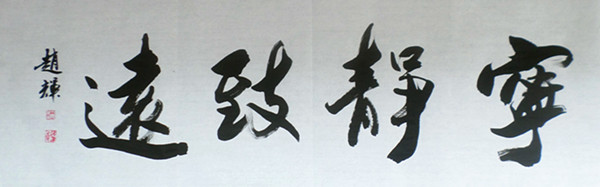 寧靜致遠
趙輝